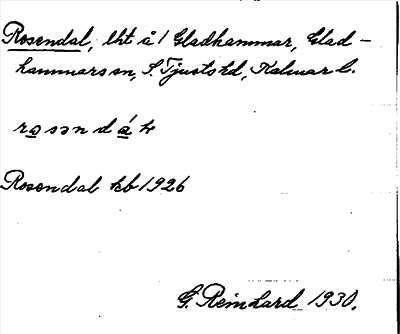 Rosendal, lht å 1 Gladhammar, Glad-
hammars sn, S. Tjusts hd, Kalmar l.
rosəndá
Rosendal kb 1926
G. Reinhard 1930.